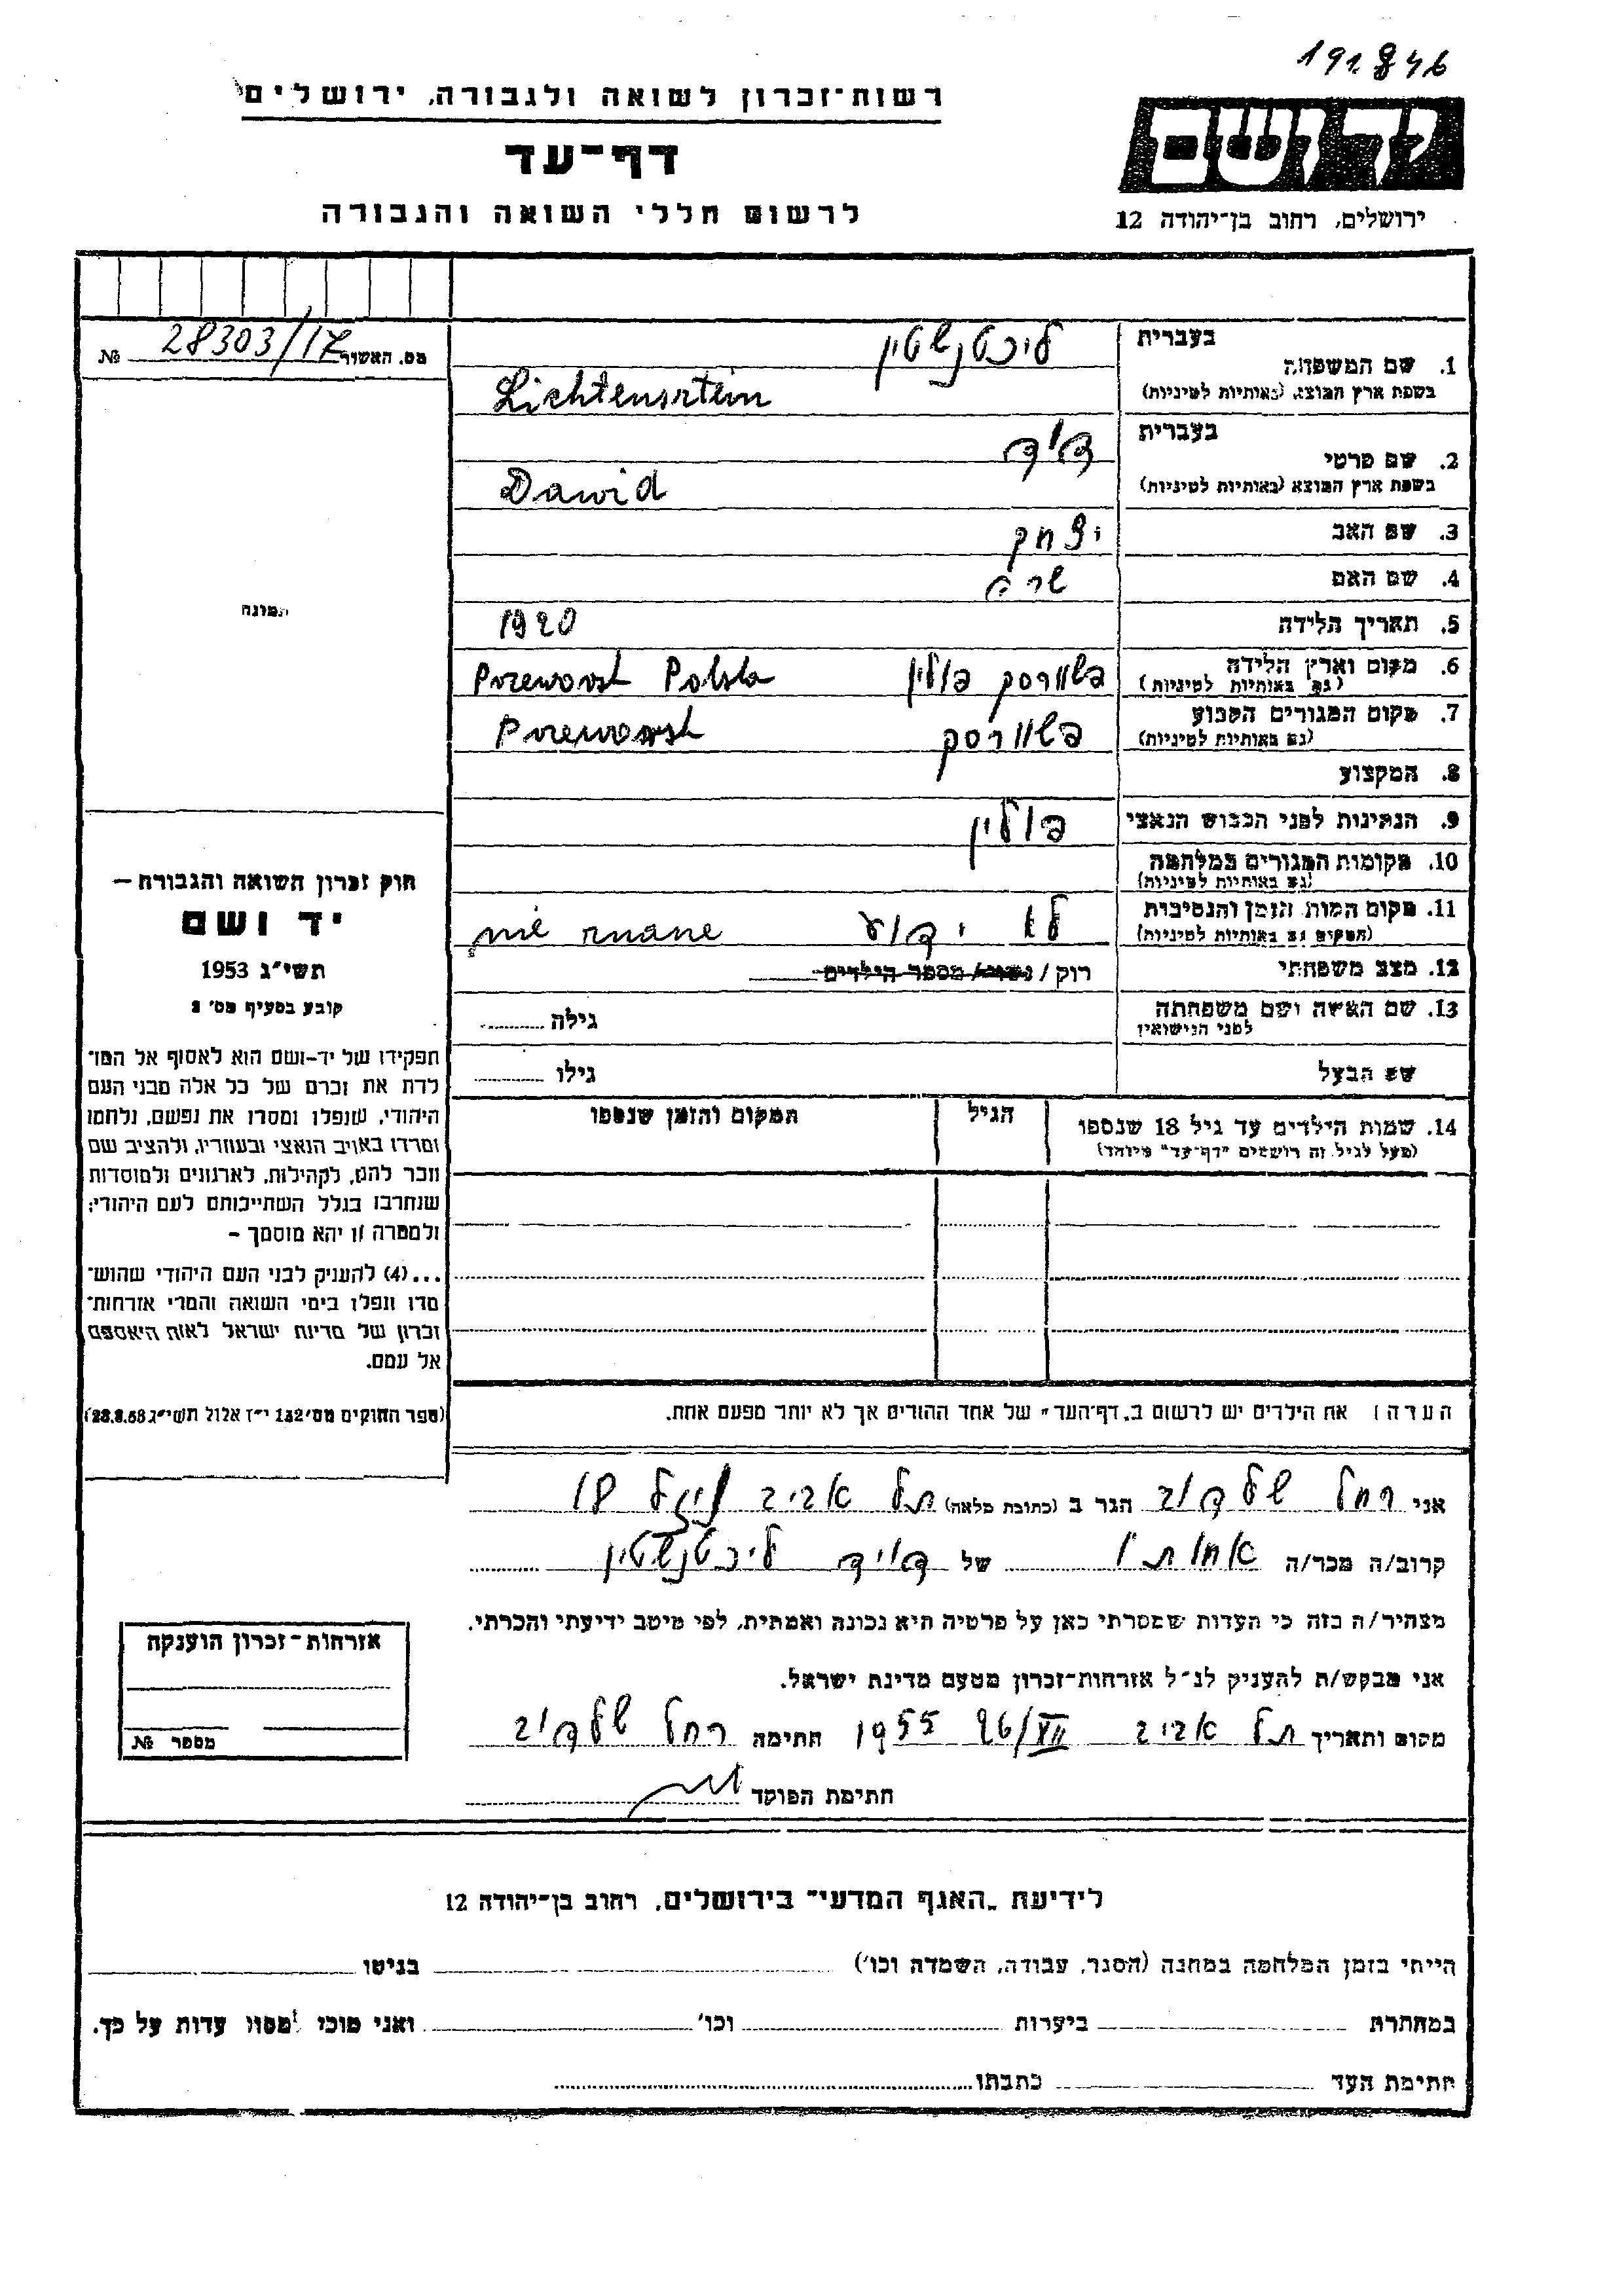 191846
רשות־זכרון לשואה ולגבורה, ירושלים
דף־עד
לרשום חללי השואה והגבורה
יד ושם
ירושלים, רחוב בן־יהודה 12
מס. האשור 28303/17 №
תמונה
1. שם המשפחה
בעברית ליכטנשטין
בשפת ארץ המוצא (באותיות לטיניות) Lichtensrtein
2. שם פרטי
בעברית דוד
בשפת ארץ המוצא (באותיות לטיניות) Dawid
3. שם האב יצחק
4. שם האם שרה
5. תאריך הלידה 1920
6. מקום וארץ הלידה פשוורסק פולין Przeworsk Polska
(גם באותיות לטיניות)
7. מקום המגורים הקבוע פשוורסק Przeworsk
(גם באותיות לטיניות)
8. המקצוע
9. הנתינות לפני הכבוש הנאצי פולין
10. מקומות המגורים במלחמה
(גם באותיות לטיניות)
11. מקום המות, הזמן והנסיבות לא ידוע nie znane
(המקום גם באותיות לטיניות)
12. מצב משפחתי רוק / נשוי / מספר הילדים
13. שם האשה ושם משפחתה גילה
לפני הנישואין
שם הבעל גילו
14. שמות הילדים עד גיל 18 שנספו הגיל המקום והזמן שנספו
(מעל לגיל זה רושמים "דף־עד" מיוחד)
הערה: את הילדים יש לרשום ב„דף־העד" של אחד ההורים אך לא יותר מפעם אחת.
חוק זכרון השואה והגבורה –
יד ושם
תשי"ג 1953
קובע בסעיף מס' 2
תפקידו של יד-ושם הוא לאסוף אל המו־
לדת את זכרם של כל אלה מבני העם
היהודי, שנפלו ומסרו את נפשם, נלחמו
ומרדו באויב הנאצי ובעוזריו, ולהציב שם
וזכר להם, לקהילות, לארגונים ולמוסדות
שנחרבו בגלל השתייכותם לעם היהודי;
ולמטרה זו יהא מוסמך –
...(4) להעניק לבני העם היהודי שהוש־
מדו ונפלו בימי השואה והמרי אזרחות־
זכרון של מדינת ישראל לאות היאספם
אל עמם.
(ספר החוקים מס' 132 י"ז אלול תשי"ג 28.8.53)
אני רחל הגר ב (כתובת מלאה) תל אביב 18
קרוב/ה מכר/ה אחותו של דויד ליכטנשטין
מצהיר/ה בזה כי העדות שמסרתי כאן על פרטיה היא נכונה ואמתית, לפי מיטב ידיעתי והכרתי.
אני מבקש/ת להעניק לנ"ל אזרחות־זכרון מטעם מדינת ישראל.
מקום ותאריך תל אביב 26/VII 1955 חתימה רחל
חתימת הפוקד
אזרחות־זכרון הוענקה
מספר №
לידיעת „האגף המדעי" בירושלים, רחוב בן־יהודה 12
הייתי בזמן המלחמה במחנה (הסגר, עבודה, השמדה וכו') בגיטו
במחתרת ביערות וכו' ואני מוכן למסור עדות על כך.
חתימת העד כתבתו